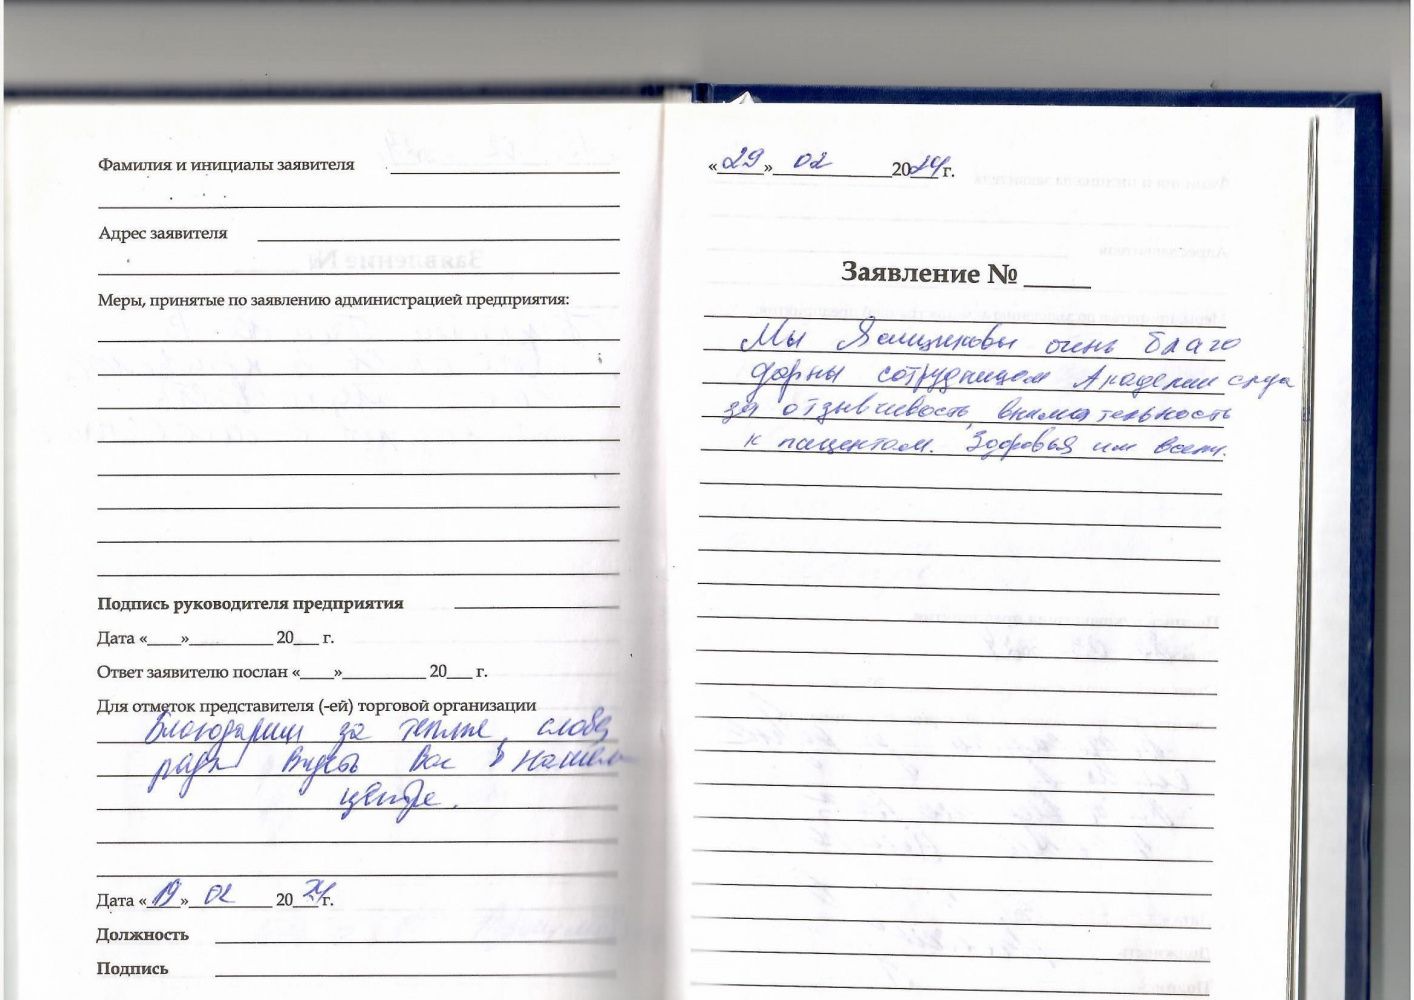 Фамилия и инициалы заявителя
Адрес заявителя
Меры, принятые по заявлению администрацией предприятия:
Подпись руководителя предприятия
Дата «___»_________ 20___ г.
Ответ заявителю послан «___»_________ 20___ г.
Для отметок представителя (-ей) торговой организации
Благодарим за теплые слова
рады видеть Вас в нашем
центре.
Дата «19» 02 2024 г.
Должность
Подпись
«29» 02 2024 г.
Заявление № ____
Мы очень благо
дарны сотрудницам Академии слуха
за отзывчивость, внимательность
к пациентам. Здоровья им всем.